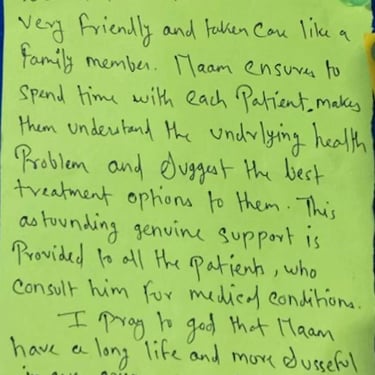 very friendly and taken care like a
family member. Maam ensures to
spend time with each Patient, makes
them understand the undrlying health
Problem and Suggest the best
treatment options to them. This
astounding genuine support is
Provided to all the patients, who
consult him for medical conditions.
I pray to god that Maam
have a long life and more Susseful